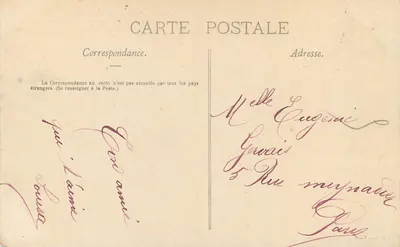 CARTE POSTALE
Correspondance.
Adresse.
La Correspondance au recto n'est pas acceptée par tous les pays
étrangers (Se renseigner à la Poste.)
Ton amie
qui t'aime
Louise
Melle Eugénie
Gervais
5 Rue
Paris